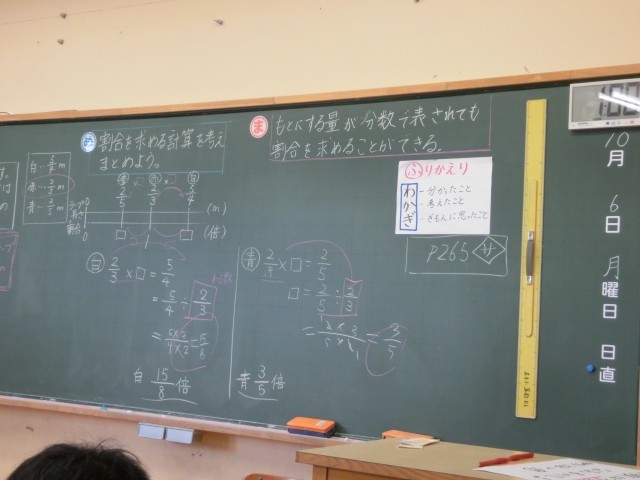 め 割合を求める計算を考え
まとめよう。
ま もとにする量が分数で表されても
割合を求めることができる。
白 5/4 m
赤 2/3 m
青 2/5 m
(m)
(倍)
白 2/3 × □ = 5/4
= 5/4 ÷ 2/3
= 5×3/4×2 =
白 15/8 倍
青 2/3 × □ = 2/5
□ = 2/5 ÷ 2/3
= 2×3/5×2 = 3/5
青 3/5 倍
ふりかえり
わ ー分かったこと
か ー考えたこと
ぎ ーぎもんに思ったこと
P265 サ
10月
6日
月曜日
日直